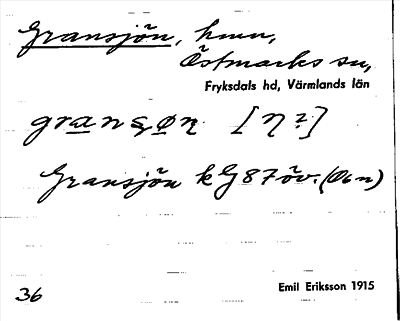 Gransjön, hmn,
Östmarks sn,
Fryksdals hd, Värmlands län
Gransjön k G87 öv.
36
Emil Eriksson 1915